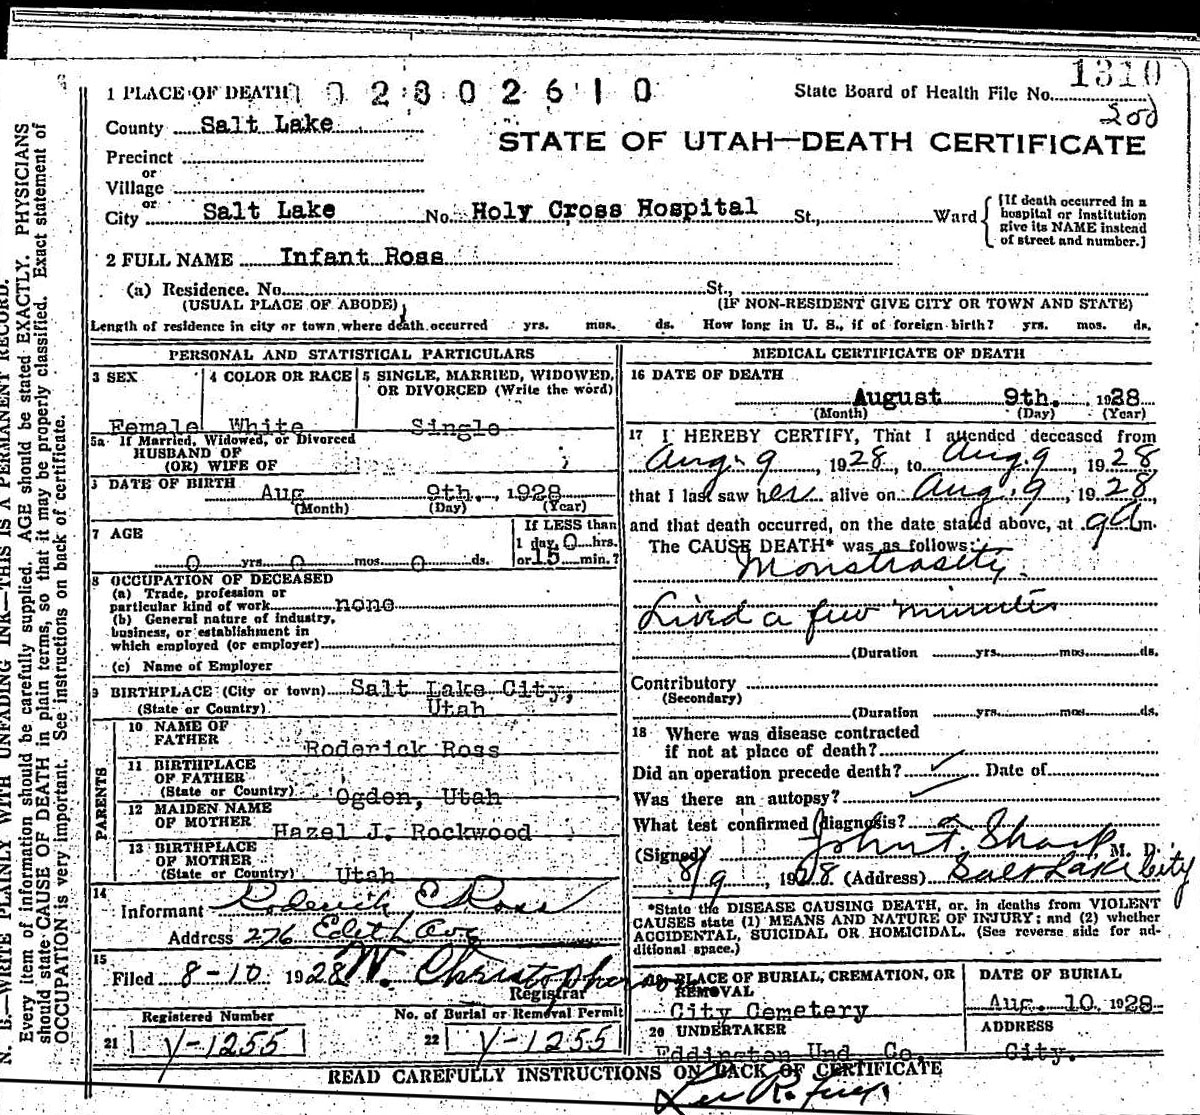 1 PLACE OF DEATH 1 0 2 8 0 2 6 1 0 State Board of Health File No. 1310
200
County Salt Lake
STATE OF UTAH—DEATH CERTIFICATE
Precinct
or
Village
or
City Salt Lake No. Holy Cross Hospital St., Ward [If death occurred in a hospital or institution give its NAME instead of street and number.]
2 FULL NAME Infant Ross
(a) Residence. No. St.,
(USUAL PLACE OF ABODE) (IF NON-RESIDENT GIVE CITY OR TOWN AND STATE)
Length of residence in city or town where death occurred yrs. mos. ds. How long in U. S., if of foreign birth? yrs. mos. ds.
PERSONAL AND STATISTICAL PARTICULARS
3 SEX 4 COLOR OR RACE 5 SINGLE, MARRIED, WIDOWED,
OR DIVORCED (Write the word)
Female White Single
5a If Married, Widowed, or Divorced
HUSBAND OF
(OR) WIFE OF
DATE OF BIRTH
Aug 9th., 1928
(Month) (Day) (Year)
7 AGE If LESS than
1 day, 0 hrs.
0 yrs. 0 mos. 0 ds. or 15 min.?
8 OCCUPATION OF DECEASED
(a) Trade, profession or
particular kind of work none
(b) General nature of industry,
business, or establishment in
which employed (or employer)
(c) Name of Employer
9 BIRTHPLACE (City or town) Salt Lake City,
(State or Country) Utah
PARENTS
10 NAME OF
FATHER Roderick Ross
11 BIRTHPLACE
OF FATHER
(State or Country) Ogden, Utah
12 MAIDEN NAME
OF MOTHER Hazel J. Rockwood
13 BIRTHPLACE
OF MOTHER
(State or Country) Utah
14
Informant Roderick C Ross
Address 276 Edith Ave
15
Filed 8-10 1928 W. Christopherson
Registrar
Registered Number No. of Burial or Removal Permit
21 V-1255 22 V-1255
MEDICAL CERTIFICATE OF DEATH
16 DATE OF DEATH
August 9th. 1928
(Month) (Day) (Year)
17 I HEREBY CERTIFY, That I attended deceased from
Aug. 9, 1928, to Aug. 9, 1928
that I last saw her alive on Aug. 9, 1928,
and that death occurred, on the date stated above, at 9 A m.
The CAUSE DEATH* was as follows:
Monstrosity.
Lived a few minutes
(Duration yrs. mos. ds.
Contributory
(Secondary)
(Duration yrs. mos. ds.
18 Where was disease contracted
if not at place of death?
Did an operation precede death? Date of
Was there an autopsy?
What test confirmed diagnosis?
(Signed) John F. Sharp, M. D.
8/9, 1928 (Address) Salt Lake City
*State the DISEASE CAUSING DEATH, or, in deaths from VIOLENT
CAUSES state (1) MEANS AND NATURE OF INJURY; and (2) whether
ACCIDENTAL, SUICIDAL OR HOMICIDAL. (See reverse side for ad-
ditional space.)
PLACE OF BURIAL, CREMATION, OR
REMOVAL DATE OF BURIAL
City Cemetery Aug. 10, 1928
20 UNDERTAKER ADDRESS
Eddington Und. Co. City.
READ CAREFULLY INSTRUCTIONS ON BACK OF CERTIFICATE
N. B.—WRITE PLAINLY WITH UNFADING INK—THIS IS A PERMANENT RECORD.
Every item of information should be carefully supplied. AGE should be stated EXACTLY. PHYSICIANS
should state CAUSE OF DEATH in plain terms, so that it may be properly classified. Exact statement of
OCCUPATION is very important. See instructions on back of certificate.